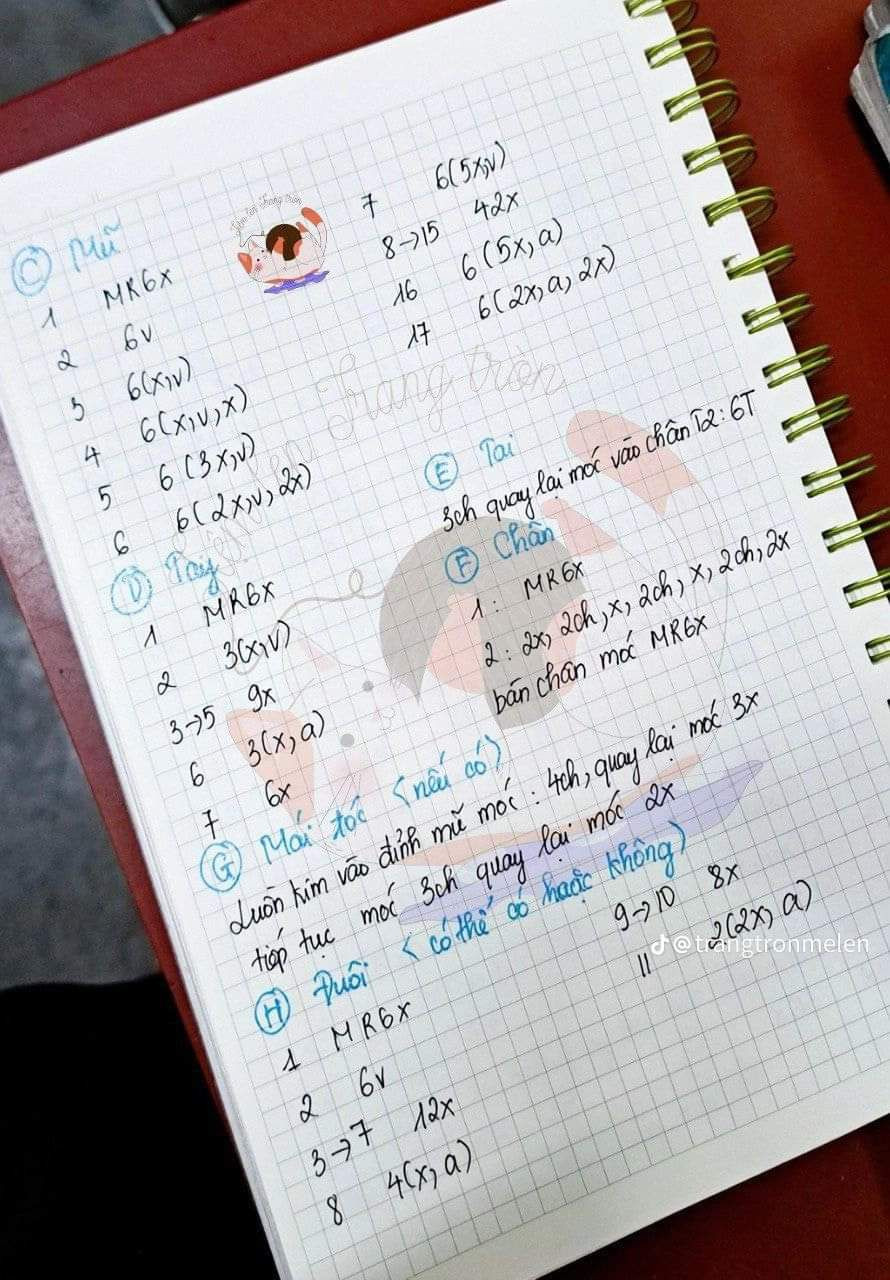 C Mũ
1 MR6x
2 6v
3 6(x,v)
4 6(x,v,x)
5 6(3x,v)
6 6(2x,v,2x)
7 6(5x,v)
8→15 42x
16 6(5x,a)
17 6(2x,a,2x)
D Tay
1 MR6x
2 3(x,v)
3→5 9x
6 3(x,a)
7 6x
E Tai
3ch quay lại móc vào chân T2: 6T
F Chân
1: MR6x
2: 2x, 2ch, x, 2ch, x, 2ch, 2x
bán chân móc MR6x
G Mái tóc (nếu có)
Luồn kim vào đỉnh mũ móc: 4ch, quay lại móc 3x
tiếp tục móc 3ch quay lại móc 2x
H Đuôi (có thể có hoặc không)
1 MR6x
2 6v
3→7 12x
8 4(x,a)
9→10 8x
11 2(2x,a)
Tiệm len Trang tròn
Tiệm len Trang tròn
@trangtronmelen